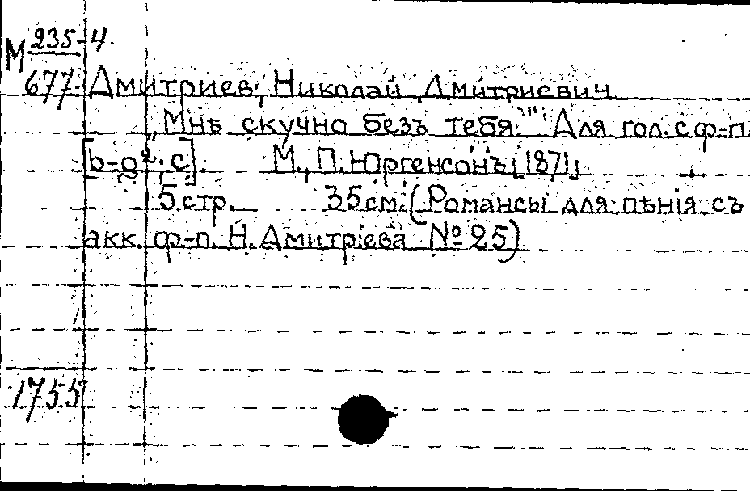 М 235-4
677 Дмитриев, Николай Дмитриевич
„Мнѣ скучно безъ тебя." Для гол. с ф-п.
М., П. Юргенсонъ, [187],
5 стр. 35 см. (Романсы для пѣнія съ
акк. ф-п. Н. Дмитріева № 25)
1755